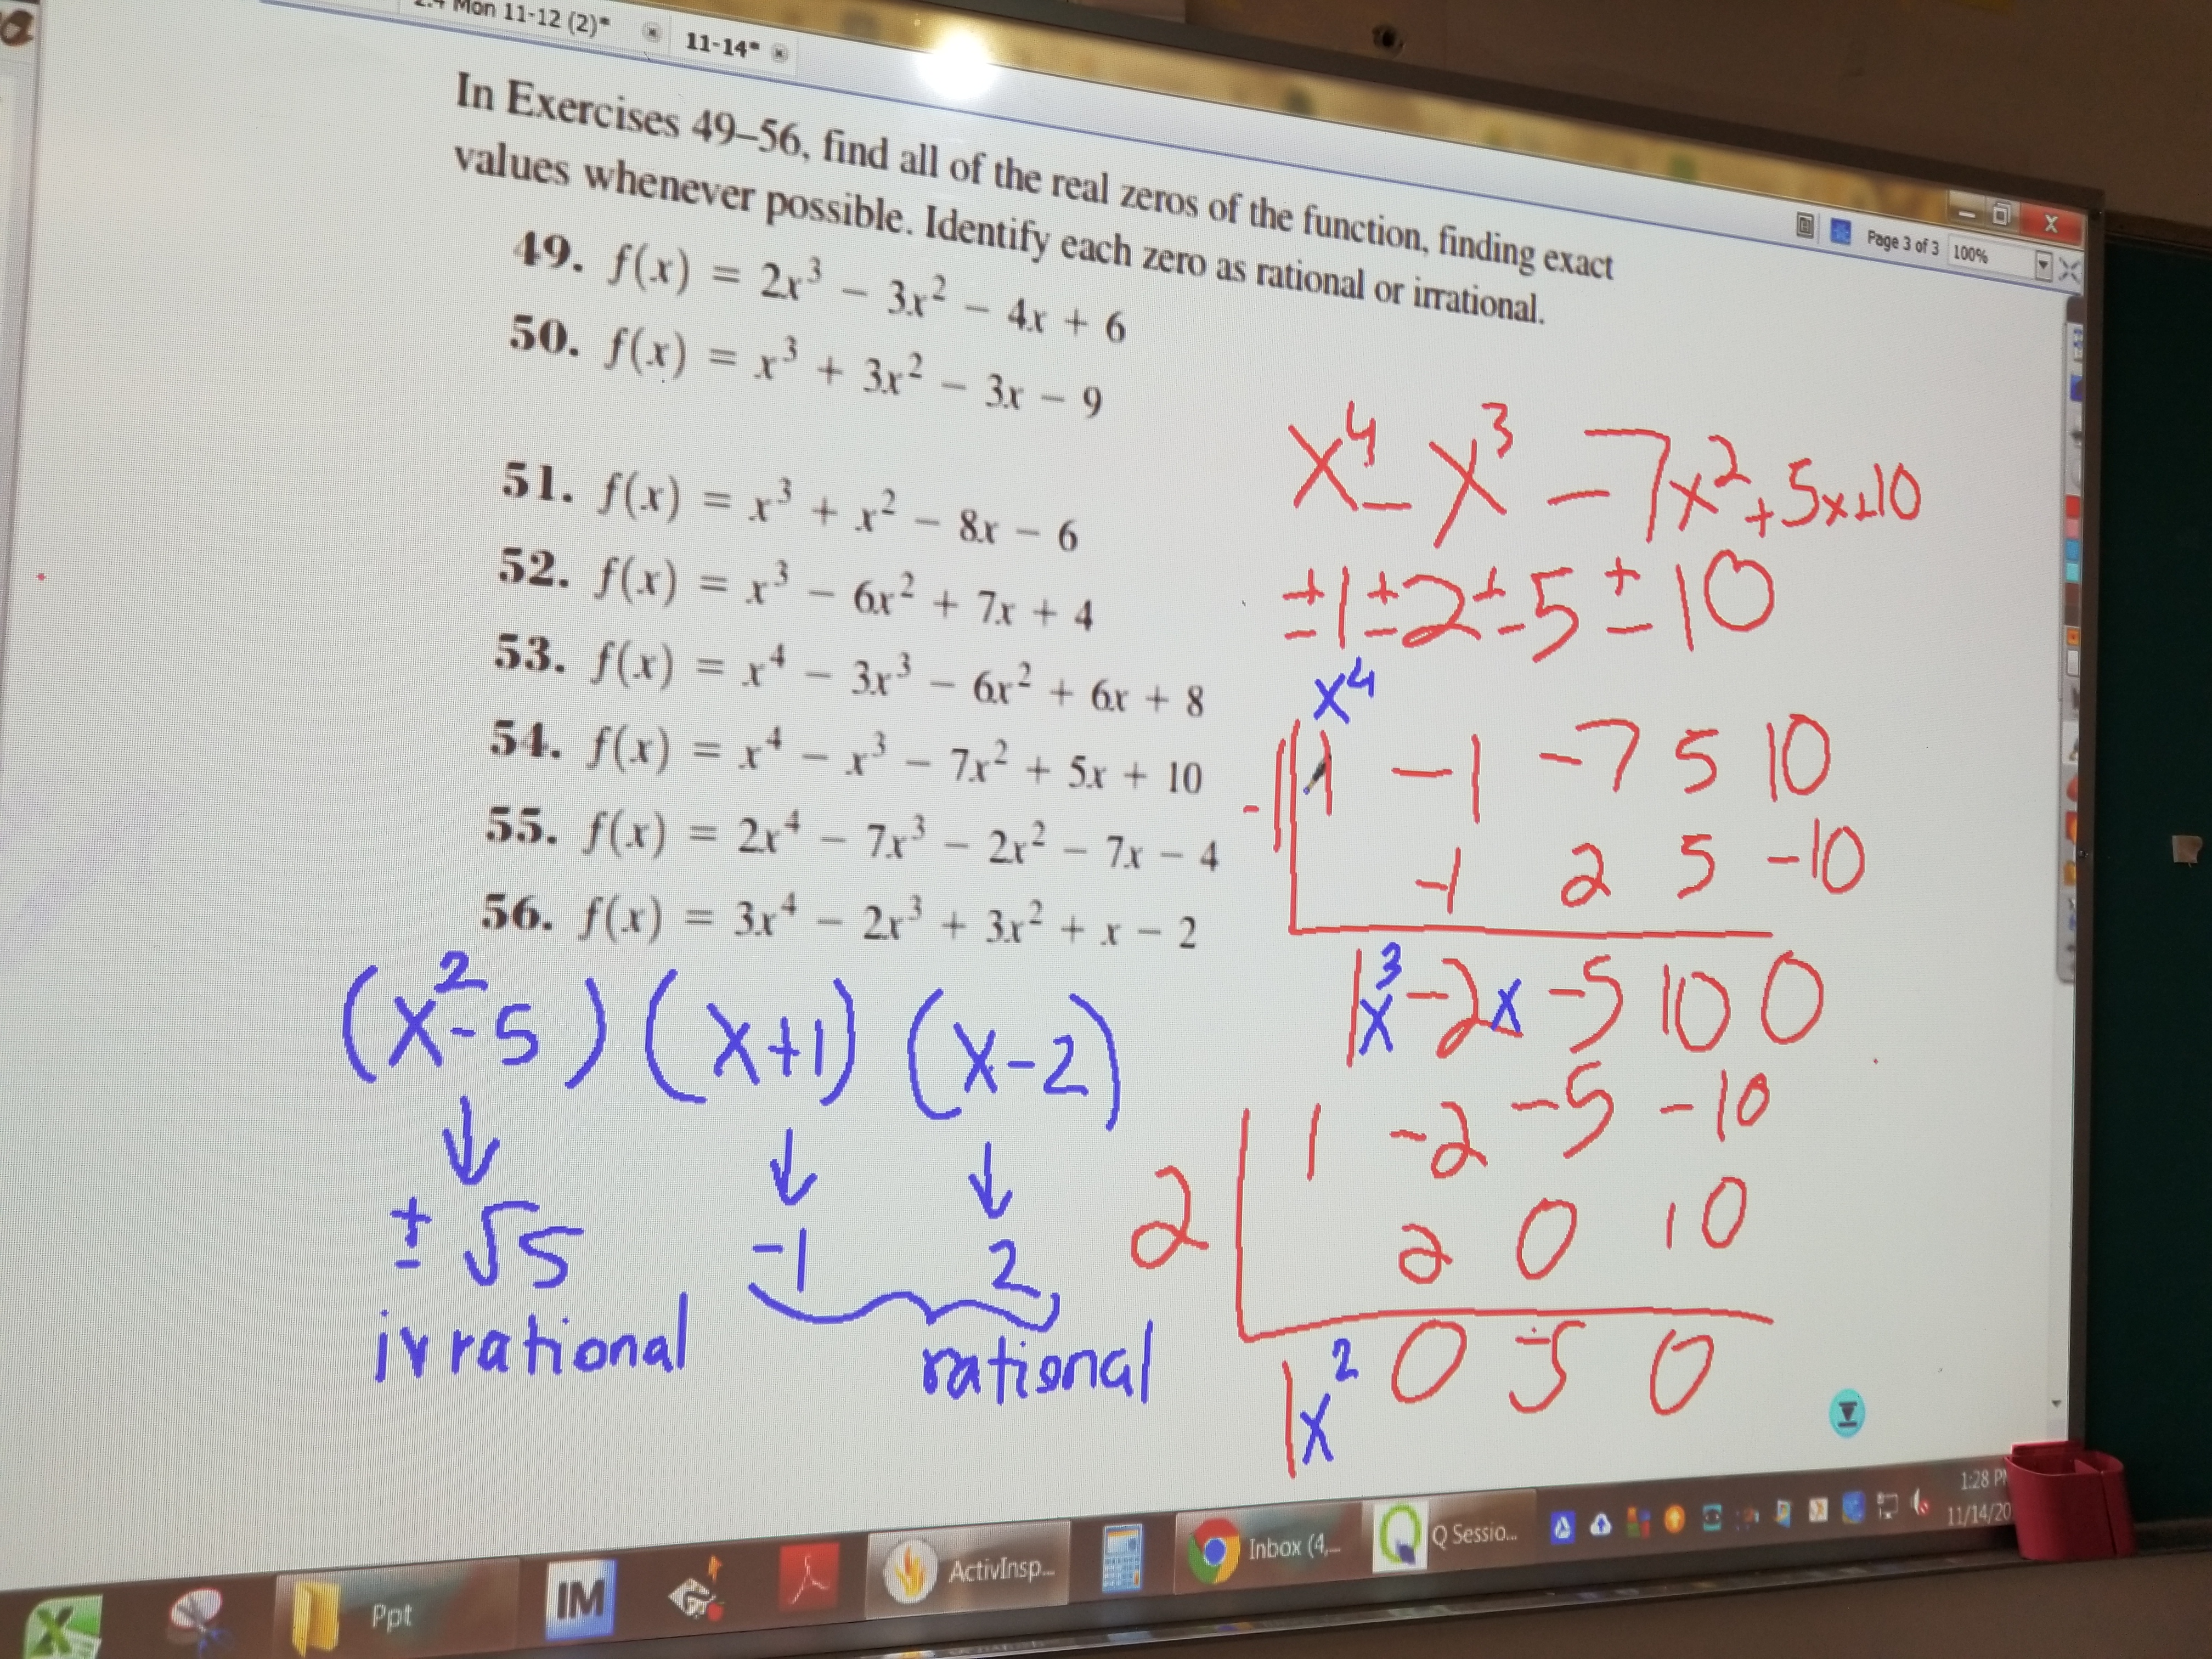 Mon 11-12 (2)*
11-14*
Page 3 of 3 100%
In Exercises 49–56, find all of the real zeros of the function, finding exact
values whenever possible. Identify each zero as rational or irrational.
49. f(x) = 2x³ − 3x² − 4x + 6
50. f(x) = x³ + 3x² − 3x − 9
51. f(x) = x³ + x² − 8x − 6
52. f(x) = x³ − 6x² + 7x + 4
53. f(x) = x⁴ − 3x³ − 6x² + 6x + 8
54. f(x) = x⁴ − x³ − 7x² + 5x + 10
55. f(x) = 2x⁴ − 7x³ − 2x² − 7x − 4
56. f(x) = 3x⁴ − 2x³ + 3x² + x − 2
(x²-5) (x+1) (x-2)
±√5 -1 2
irrational rational
x⁴ - x³ - 7x² + 5x + 10
±1 ±2 ±5 ±10
x⁴
-1 1 -1 -7 5 10
-1 2 5 -10
1 x³ -2x -5 10 0
1 -2 -5 -10
2 2 0 10
1 x² 0 -5 0
Ppt
IM
ActivInsp...
Inbox (4,...
Q Sessio...
1:28 P
11/14/20